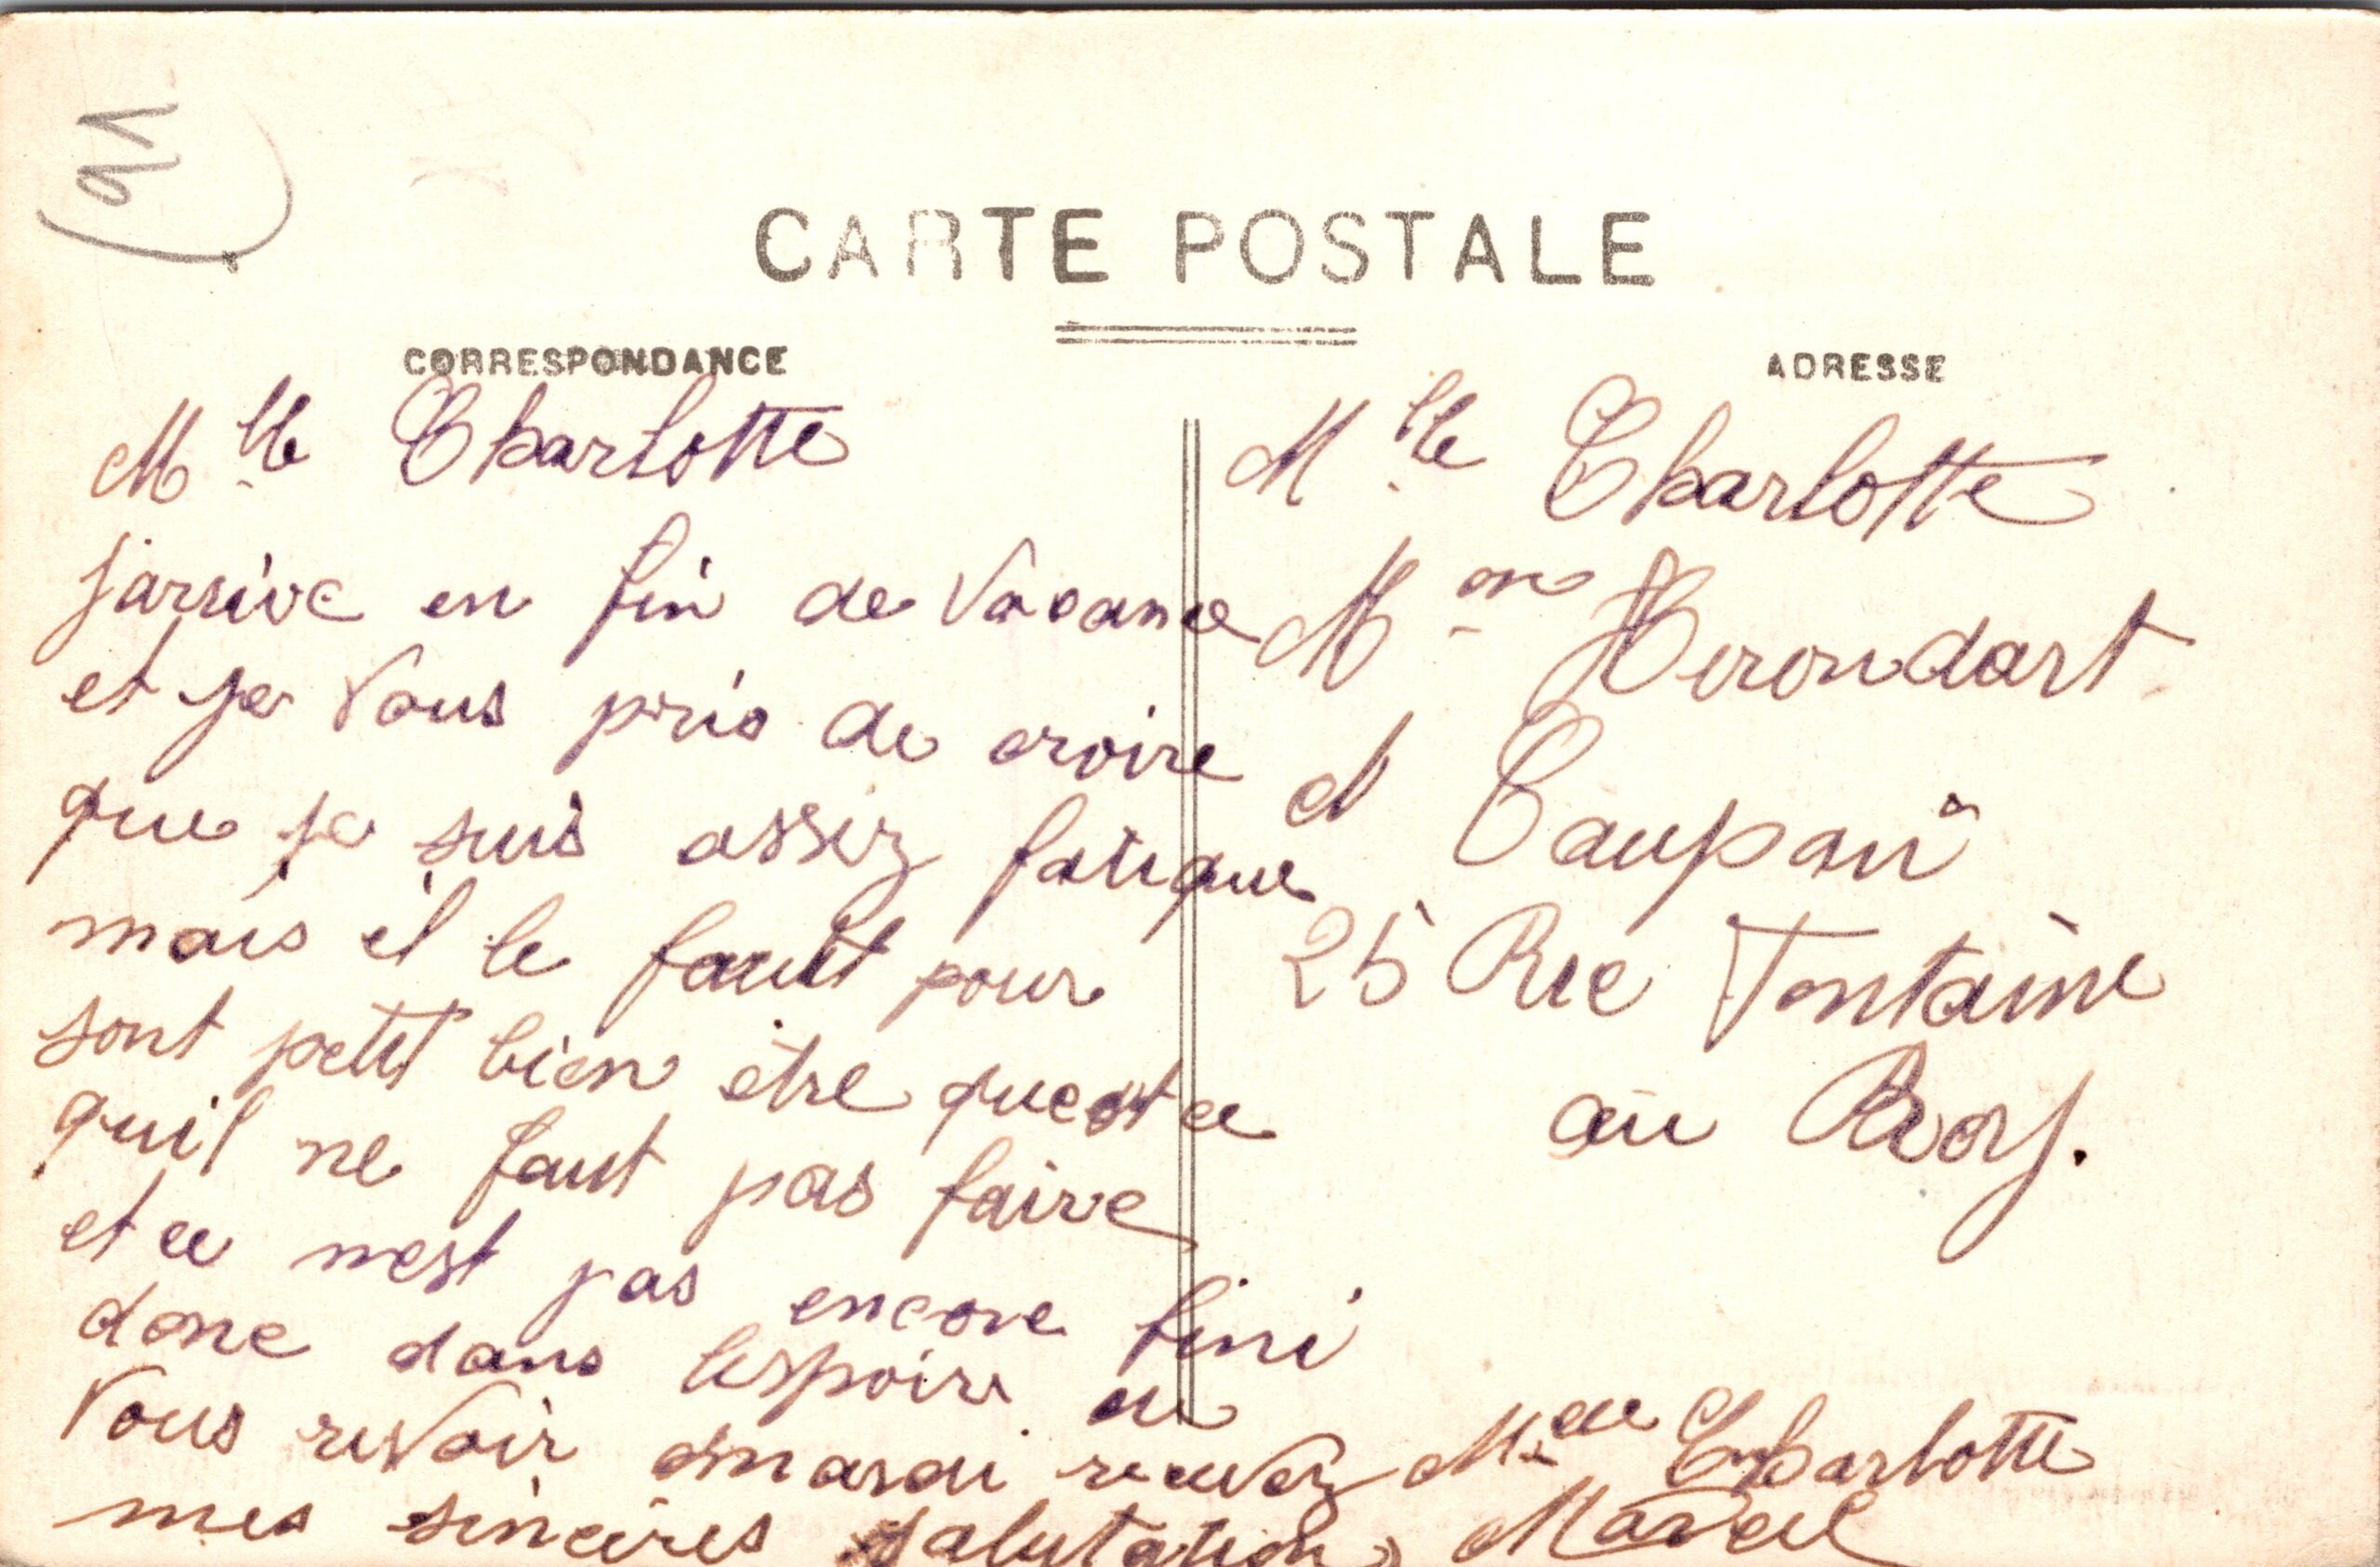 91
CARTE POSTALE
CORRESPONDANCE
Mlle Charlotte
j'arrive en fin de Vacance
et je vous pris de croire
que je suis assez fatigue
mais il le faut pour
sont petit bien être quest ce
quil ne faut pas faire
et ce nest pas encore fini
donc dans lespoire de
Vous revoir mardi recevez Mlle Charlotte
mes sincères salutation Marcel
ADRESSE
Mlle Charlotte
Mon Herondart
et Taupin
25 Rue Fontaine
au Roy.